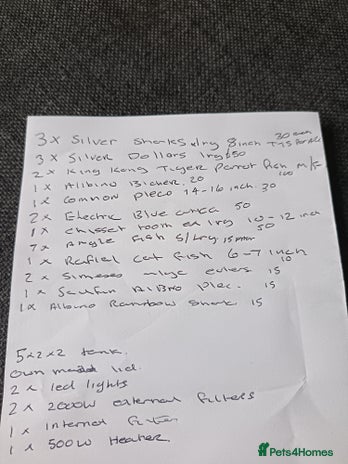 30 each
3 x Silver Sharks lrg 8 inch
3 x Silver Dollars lrg £50
2 x King Kong Tiger Parrot fish m/f
100
1 x Albino Bicher. 20
1 x Common pleco 14-16 inch. 30
2 x Electric Blue acara 50
1 x room lrg 10-12 inch
50
7 x Angle fish s/lrg 15
1 x Rafiel Cat fish 6-7 inch
10
2 x Simese eaters 15
1 x Sailfin Albino Plec. 15
1 x Albino Rainbow Shark 15
5x2x2 tank.
Own made lid.
2 x led lights
2 x 2000w external filters
1 x Internal filter
1 x 500w Heater.
Pets4Homes